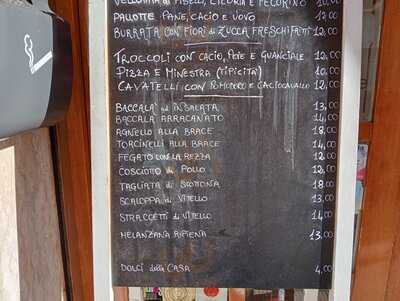 VELLUTATA di PISELLI, CICORIA E PECORINO 10,00
PALLOTTE PANE, CACIO E UOVO 12,00
BURRATA CON FIORI di ZUCCA FRESCHI FRITTI 12,00
TROCCOLI CON CACIO, PEPE E GUANCIALE 12,00
PIZZA E MINESTRA (TIPICITÀ) 10,00
CAVATELLI CON POMODORO E CACIOCAVALLO 12,00
BACCALA' IN INSALATA 13,00
BACCALÀ ARRACANATO 14,00
AGNELLO ALLA BRACE 18,00
TORCINELLI ALLA BRACE 14,00
FEGATO CON LA REZZA 12,00
COSCIOTTO di POLLO 12,00
TAGLIATA DI SCOTTONA 18,00
SCALOPPA di VITELLO 13,00
STRACCETTI di VITELLO 14,00
MELANZANA RIPIENA 13,00
DOLCI della CASA 4,00